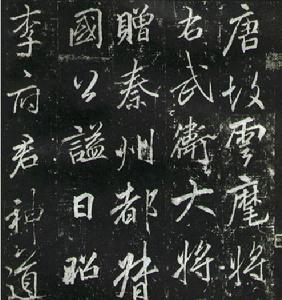 唐故雲麾將
右武衛大將
贈秦州都督
國公謚曰昭
李府君神道